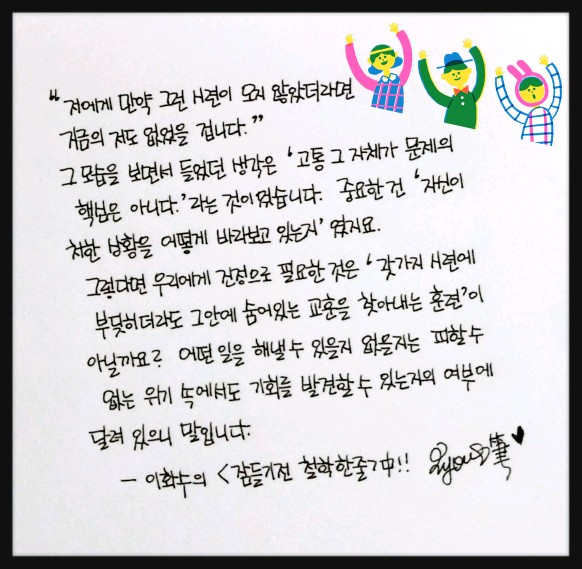 “ 저에게 만약 그런 시련이 오지 않았더라면
지금의 저도 없었을 겁니다.”
그 모습을 보면서 들었던 생각은 ‘고통 그 자체가 문제의
핵심은 아니다.’라는 것이었습니다. 중요한 건 ‘자신이
처한 상황을 어떻게 바라보고 있는지’ 였지요.
그렇다면 우리에게 진정으로 필요한 것은 ‘갖가지 시련에
부딪히더라도 그안에 숨어있는 교훈을 찾아내는 훈련’이
아닐까요? 어떤 일을 해낼 수 있을지 없을지는 피할 수
없는 위기 속에서도 기회를 발견할 수 있는지의 여부에
달려 있으니 말입니다.
- 이화수의 <잠들기전 철학한줄>中!!